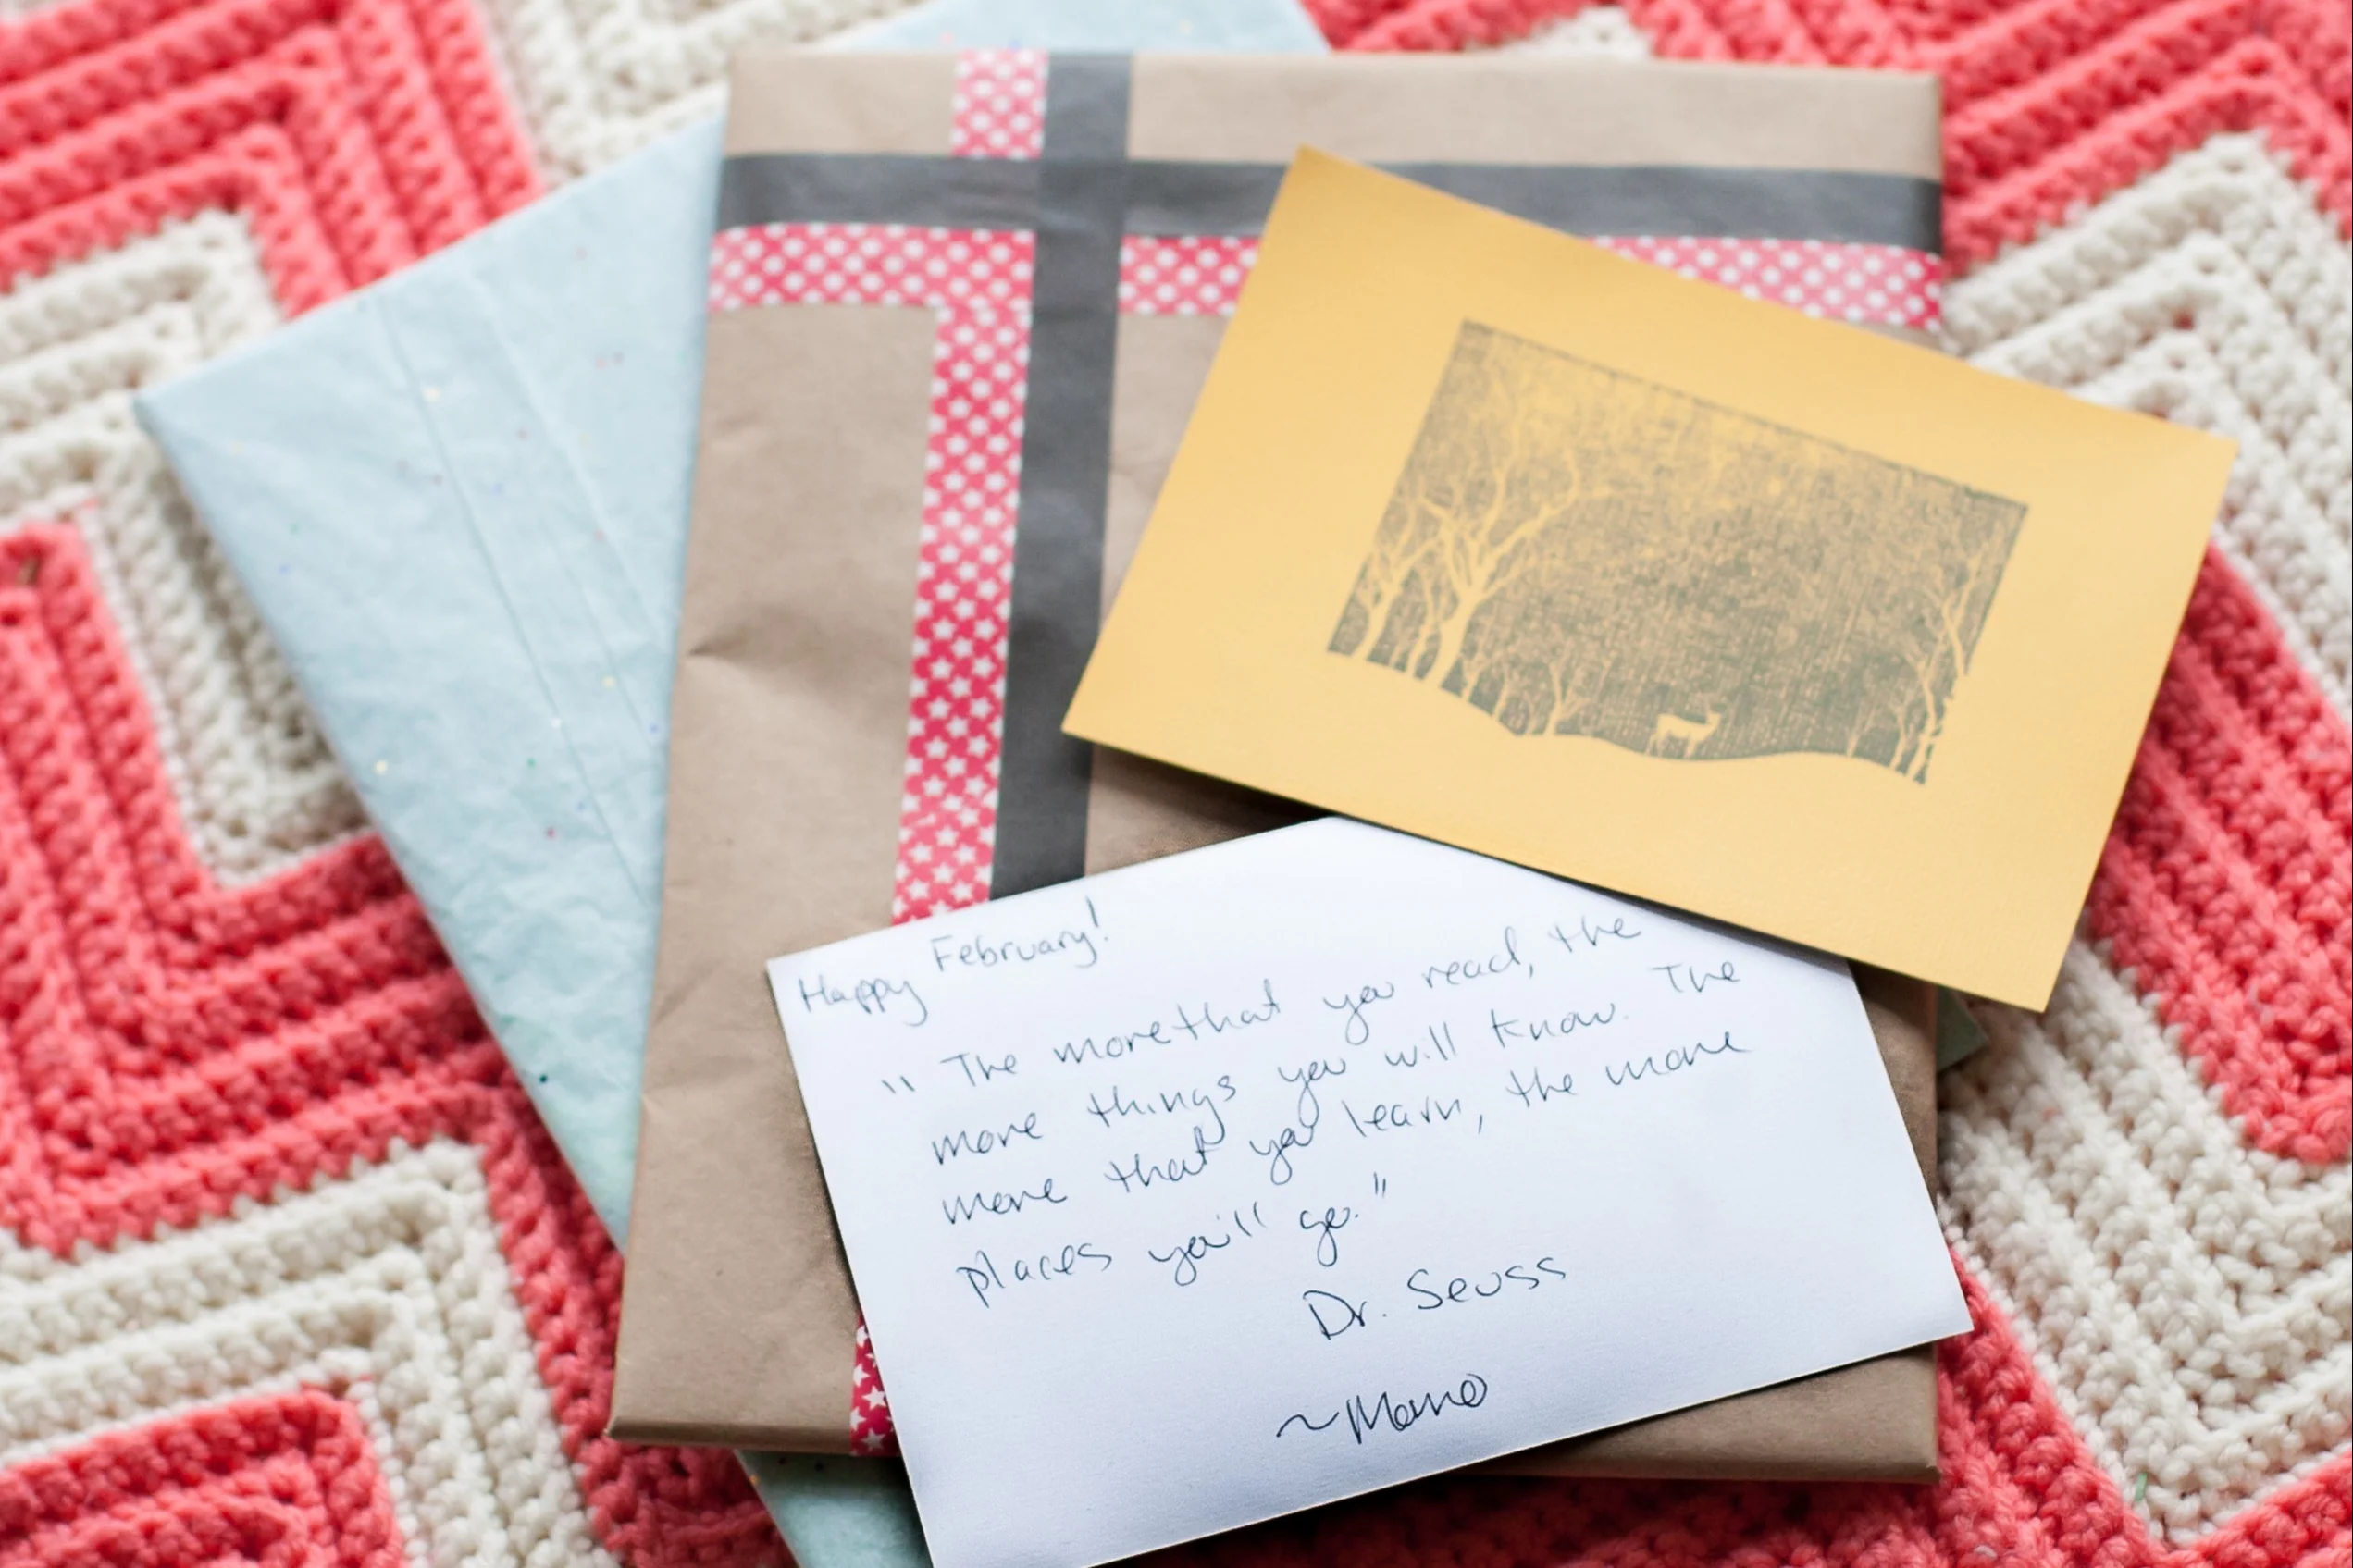 Happy February!
" The more that you read, the
more things you will know. The
more that you learn, the more
places you'll go."
Dr. Seuss
~Mamo